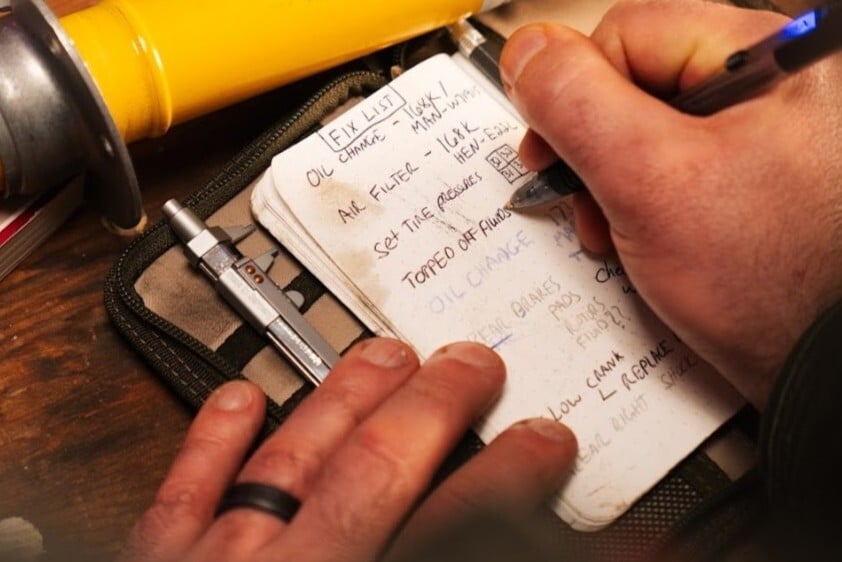 FIX LIST
OIL CHANGE - 168K/
MAN-W719/5
AIR FILTER - 168K
HEN-E22
Set TIRE PRESSURES
TOPPED OFF FLUIDS
OIL CHANGE
REAR BRAKES
PADS
ROTORS
FLUID??
LOW CRANK
REPLACE
REAR RIGHT SHOCK